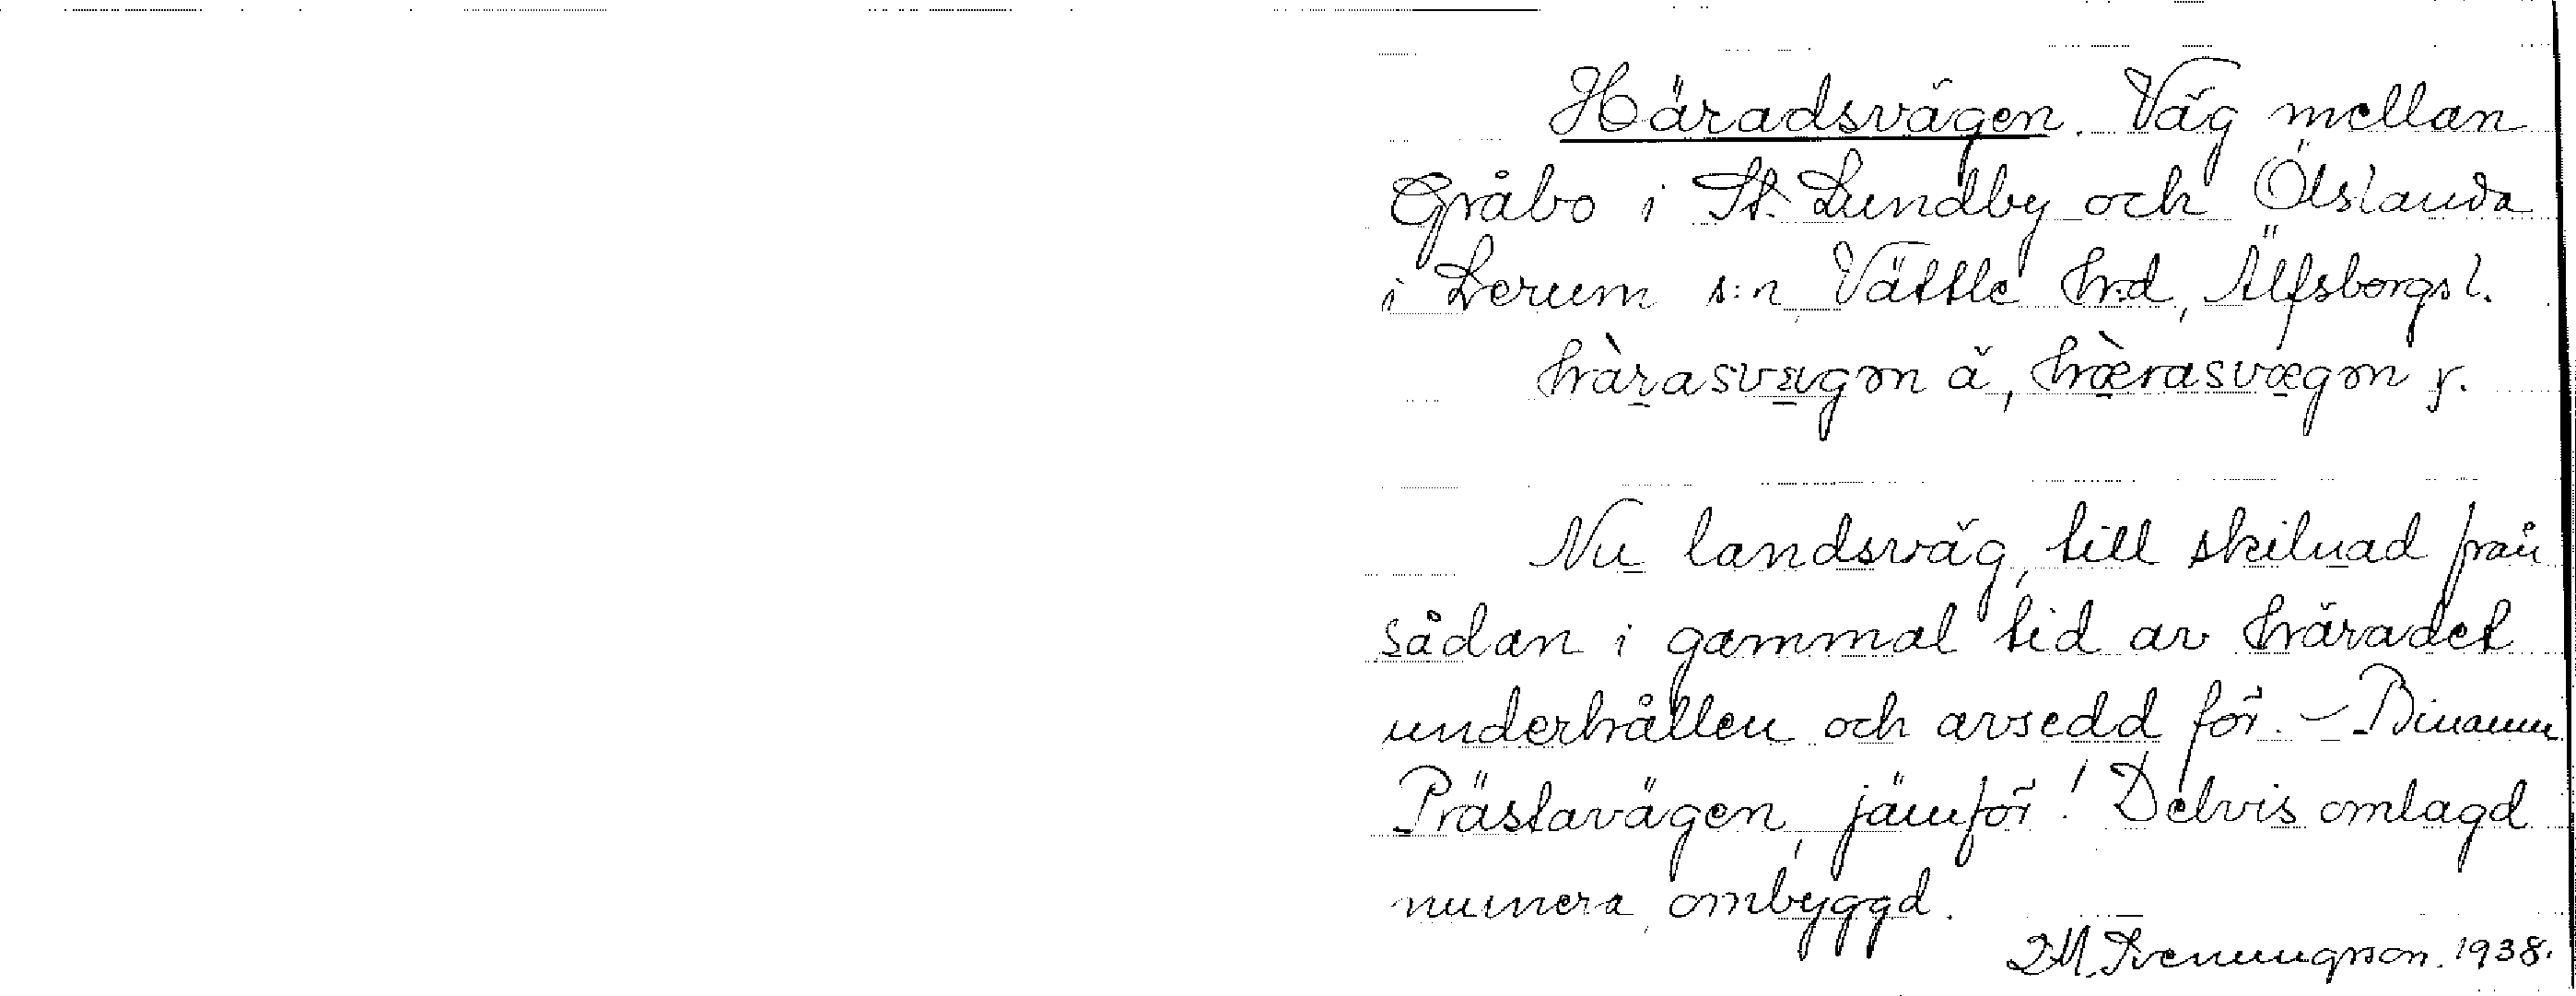 Häradsvägen. Väg mellan
Gråbo i St. Lundby och Ölslanda
i Lerum s:n, Vättle hrd, Älfsborgs l.
hàrasvægən ä, hæ̀rasvægən y.
Nu landsväg, till skilnad från
sådan i gammal tid av häradet
underhållen och avsedd för. – Binamn
Prästavägen, jämför! Delvis omlagd
numera, ombyggd.
Svenungsson. 1938.